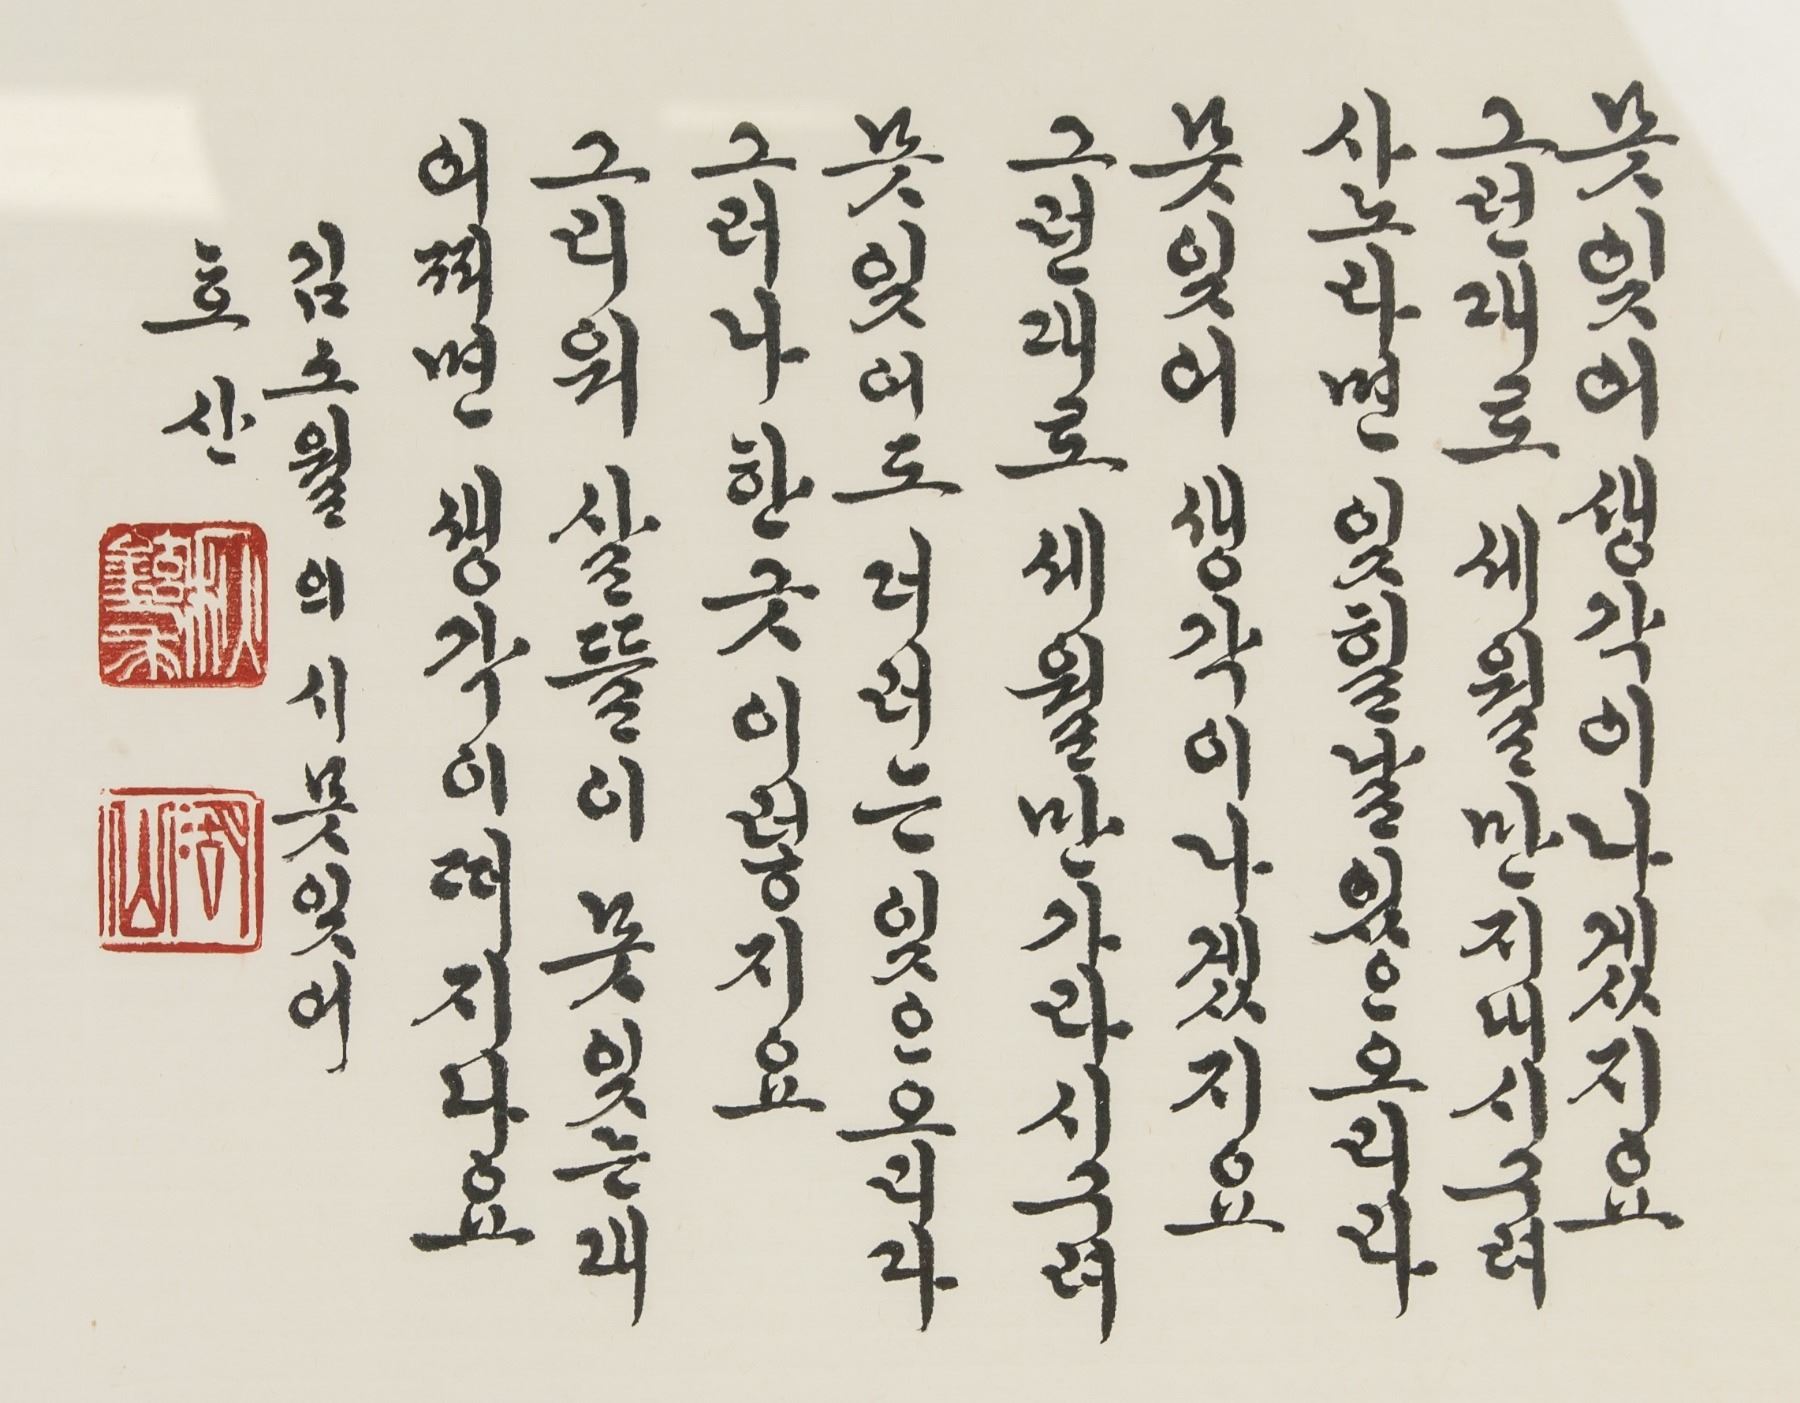 못잊어 생각이나겠지요
그런대로 세월만지내시구려
사노라면 잊힐날있으오리라
못잊어 생각이나겠지요
그런대로 세월만가라시구려
못잊어도 더러는잊으오리라
그러나 한긋 이렇지요
그리워 살뜰이 못잊는대
어찌면 생각이떠지나요
김소월의 시 못잊어
호산